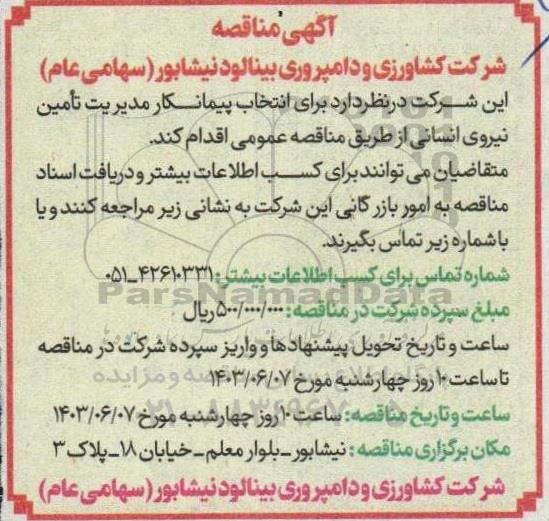 آگهی مناقصه
شرکت کشاورزی و دامپروری بینالود نیشابور (سهامی عام)
این شرکت در نظر دارد برای انتخاب پیمانکار مدیریت تأمین
نیروی انسانی از طریق مناقصه عمومی اقدام کند.
متقاضیان می توانند برای کسب اطلاعات بیشتر و دریافت اسناد
مناقصه به امور بازرگانی این شرکت به نشانی زیر مراجعه کنند و یا
با شماره زیر تماس بگیرند.
شماره تماس برای کسب اطلاعات بیشتر: ۴۲۶۱۰۳۳۱-۰۵۱
مبلغ سپرده شرکت در مناقصه: ۵۰۰/۰۰۰/۰۰۰ ریال
ساعت و تاریخ تحویل پیشنهادها و واریز سپرده شرکت در مناقصه
تا ساعت ۱۰ روز چهارشنبه مورخ ۱۴۰۳/۰۶/۰۷
ساعت و تاریخ مناقصه: ساعت ۱۰ روز چهارشنبه مورخ ۱۴۰۳/۰۶/۰۷
مکان برگزاری مناقصه: نیشابور - بلوار معلم - خیابان ۱۸ - پلاک ۳
شرکت کشاورزی و دامپروری بینالود نیشابور (سهامی عام)
ParsNamadData